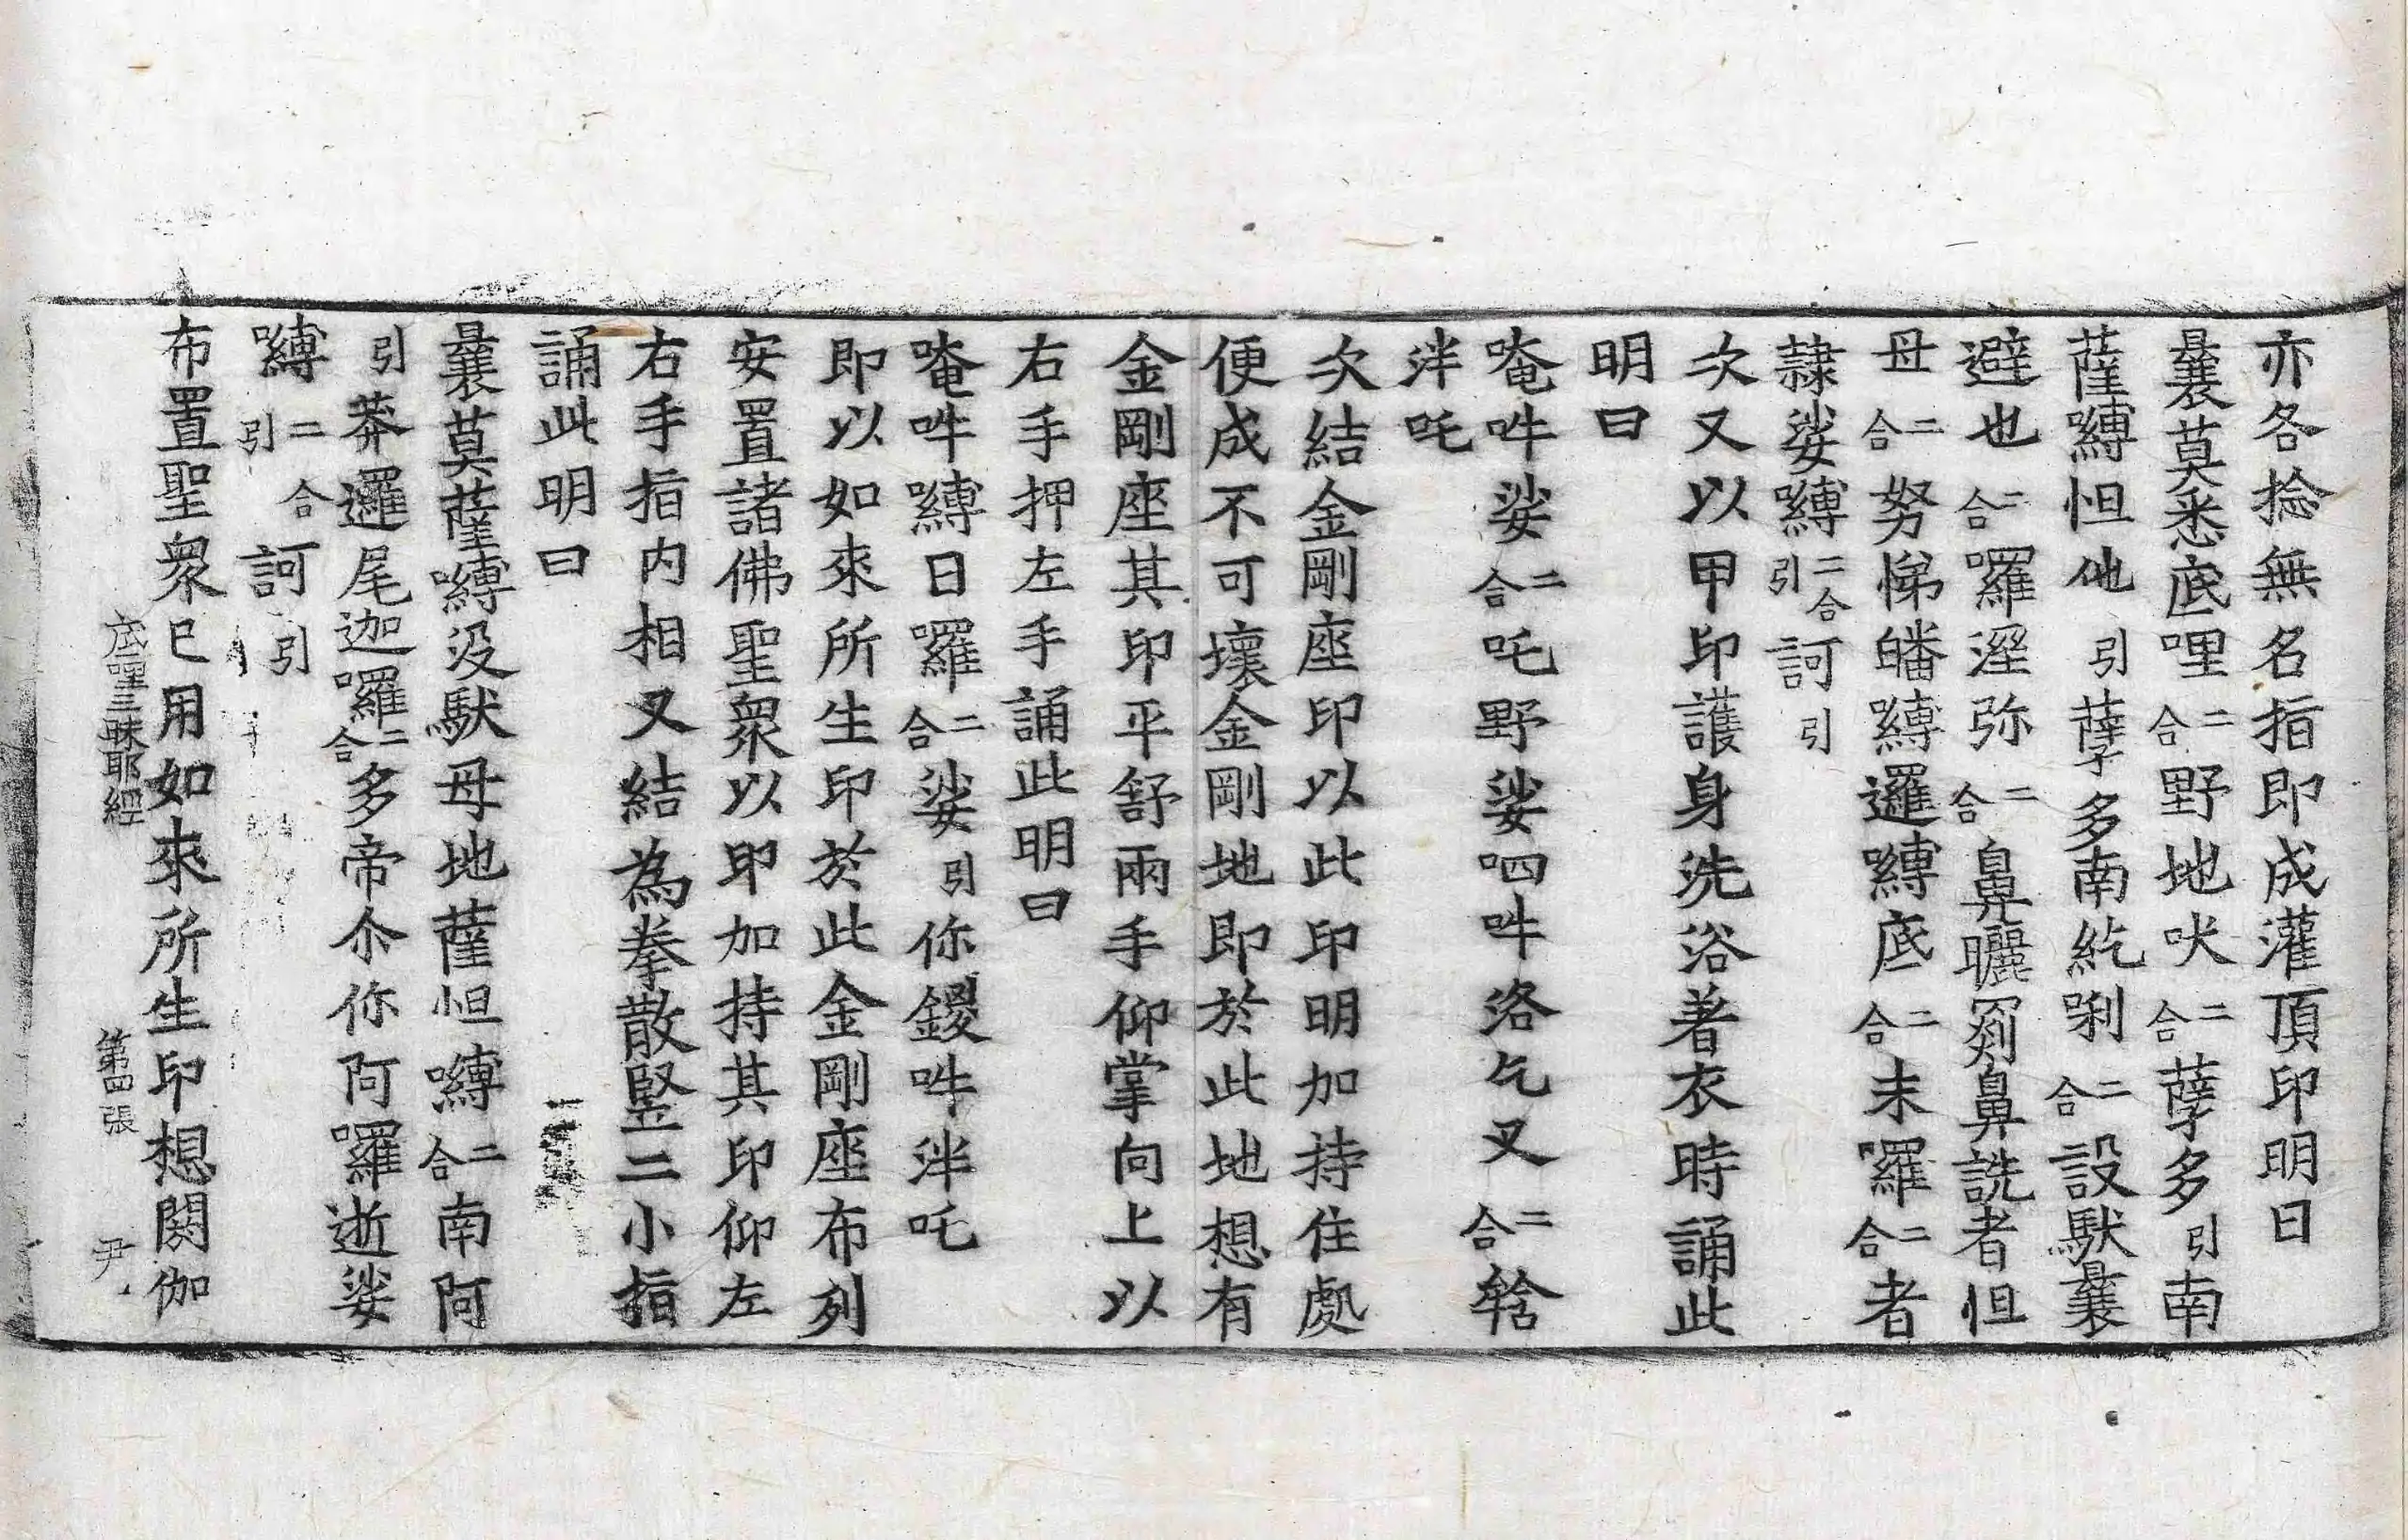 亦各捻無名指即成灌頂印明曰
曩莫悉底哩二合野地吠二合孽多引南
薩嚩怛他引孽多南紇唎二合設馱曩
避也二合囉溼弥二合鼻曬罽鼻詵者怛
母二合努悌皤嚩邏嚩底二合末囉二合者
隸娑嚩二合引訶引
次又以甲印護身洗浴著衣時誦此
明曰
唵吽娑二合吒野娑呬吽洛乞叉二合𤙖
泮吒
次結金剛座印以此印明加持住處
便成不可壞金剛地即於此地想有
金剛座其印平舒兩手仰掌向上以
右手押左手誦此明曰
唵吽嚩日囉二合娑引你鑁吽泮吒
即以如來所生印於此金剛座布列
安置諸佛聖衆以印加持其印仰左
右手指内相叉結為拳散竪二小指
誦此明曰
曩莫薩嚩没馱母地薩怛嚩二合南阿
引莽邏尾迦囉二合多帝尒你阿囉逝娑
嚩二合引訶引
布置聖衆已用如來所生印想閼伽
底哩三昧耶經 第四張 尹